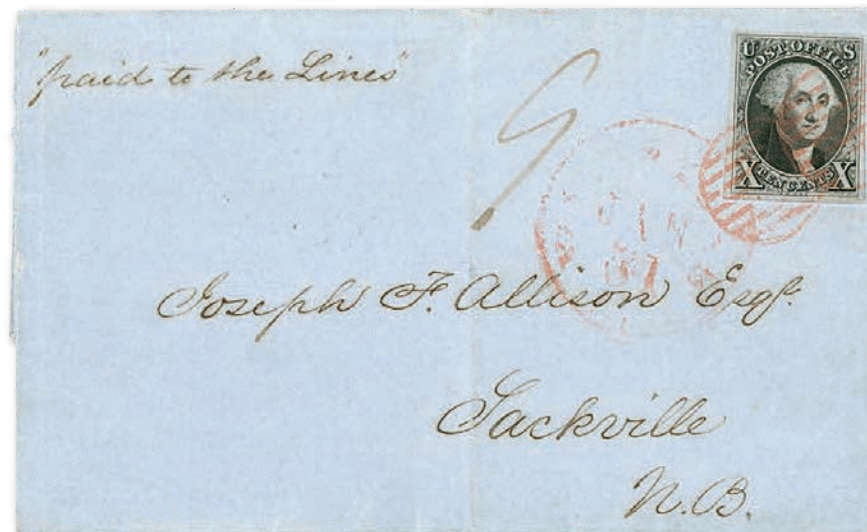 "paid to the Lines"
9
U S
POST OFFICE
X TEN CENTS X
JUN
Joseph F. Allison Esqr.
Sackville
N.B.